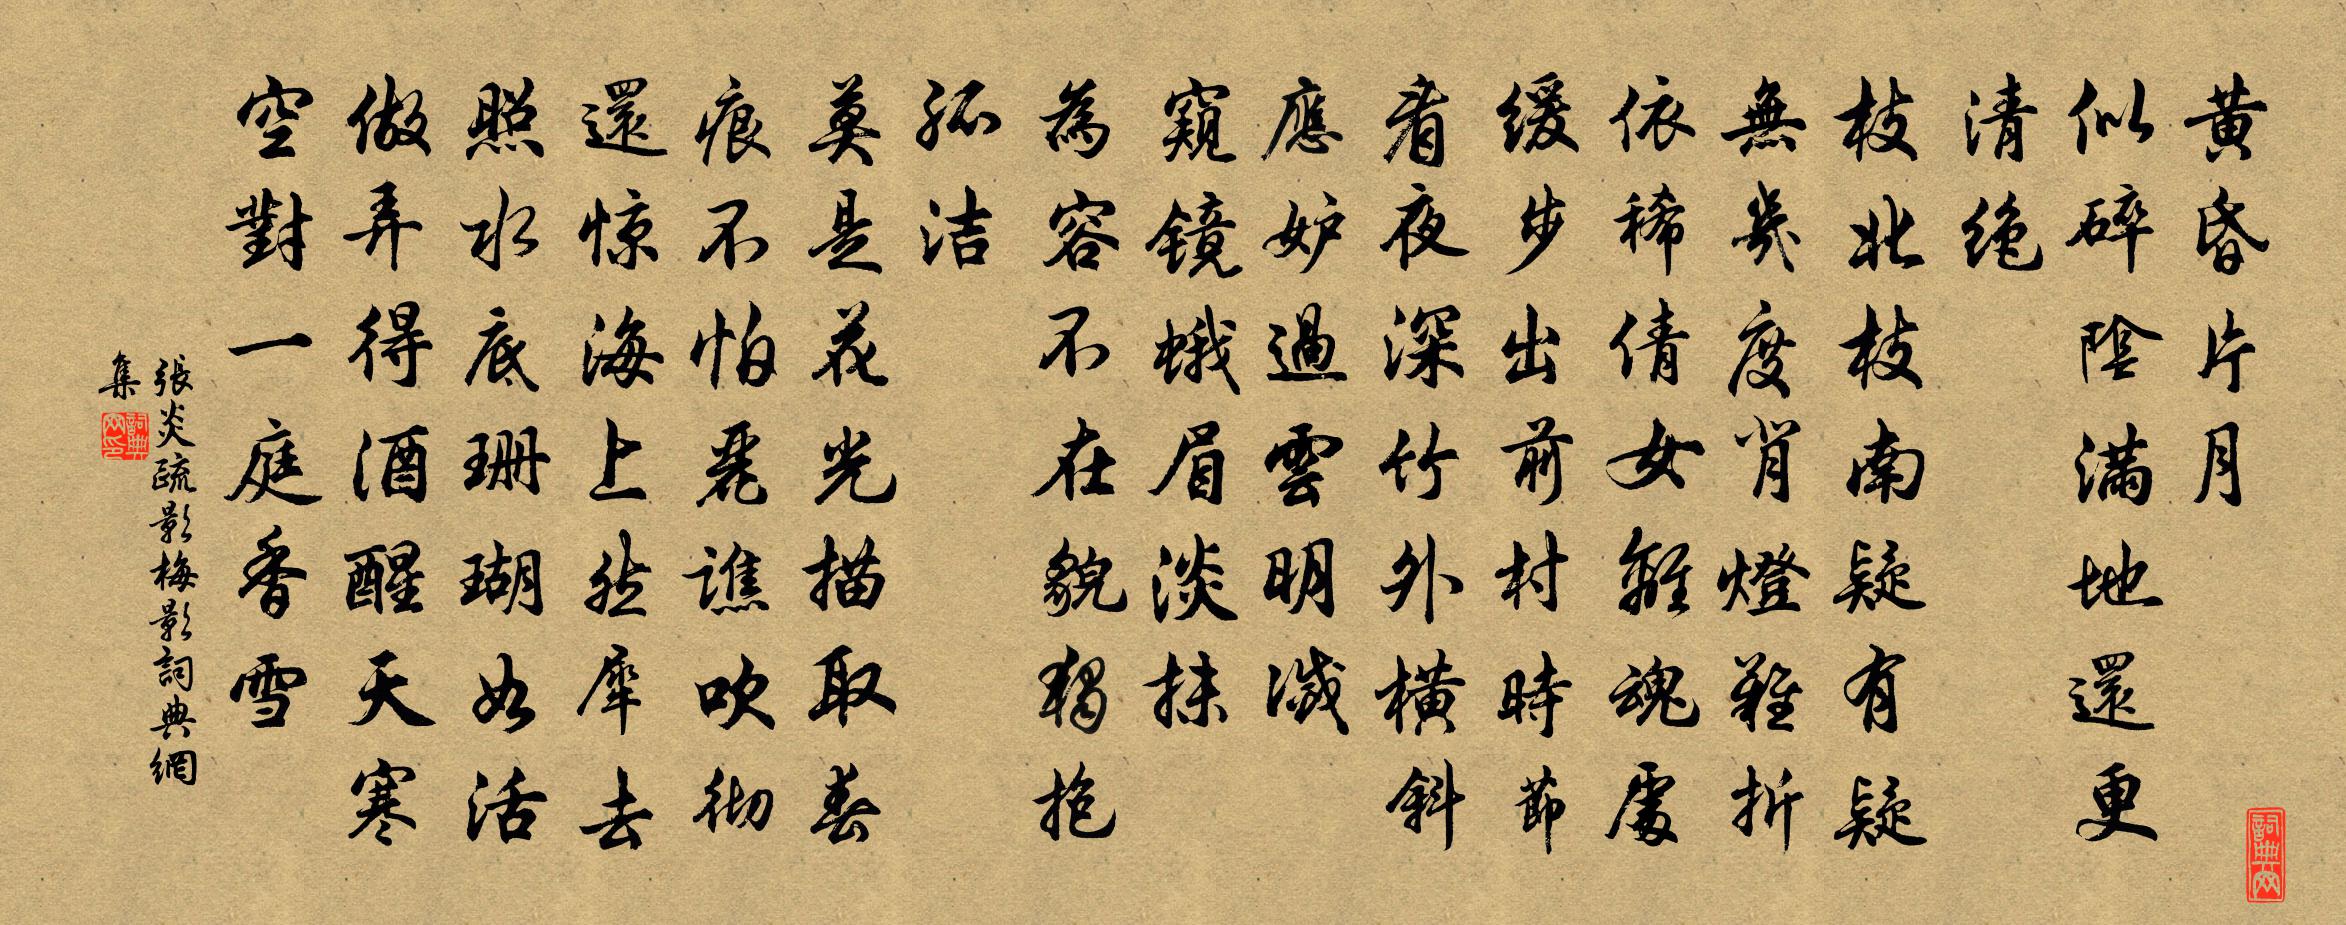 黄昏片月
似碎陰满地還更
清绝
枝北枝南疑有疑
無幾度背燈難折
依稀倩女離魂處
缓步出前村時節
看夜深竹外横斜
應妒過雲明滅
窺鏡蛾眉淡抹
為容不在貌獨抱
孤洁
莫是花光描取春
痕不怕麗譙吹彻
還惊海上然犀去
照水底珊瑚如活
做弄得酒醒天寒
空對一庭香雪
張炎疏影梅影詞典網
集
詞典网印
詞典网